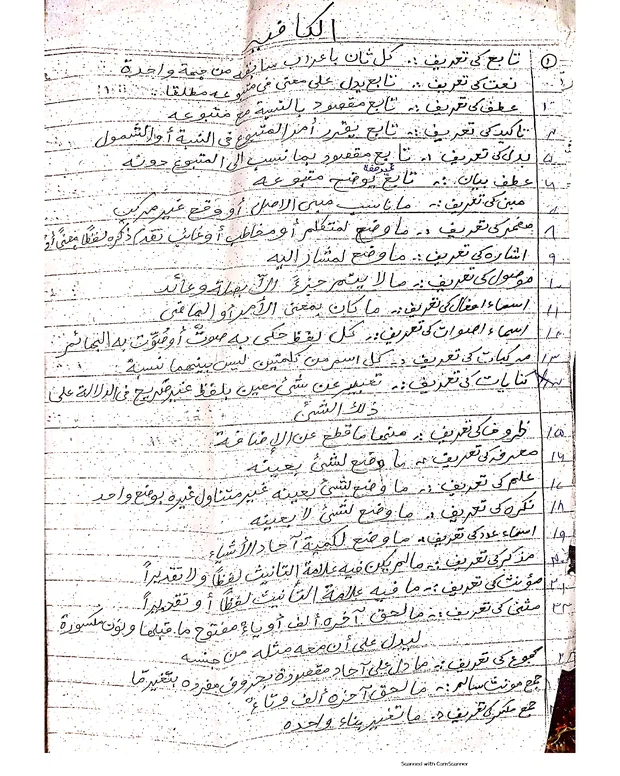 الکافیہ
① تابع کی تعریف :۔ کل ثان باعراب سابقہ من جہة واحدة
نعت کی تعریف :۔ تابع یدل علی معنی فی متبوعہ مطلقا
عطف کی تعریف :۔ تابع مقصود بالنسبة مع متبوعہ
۴ تاکید کی تعریف :۔ تابع یقرر أمر المتبوع فی النسبة أو الشمول
۵ بدل کی تعریف :۔ تابع مقصود بما نسب الی المتبوع دونہ
۶ عطف بیان :۔ تابع غیر صفة یوضح متبوعہ
مبنی کی تعریف :۔ ما ناسب مبنی الاصل أو وقع غیر مرکب
۸ مضمر کی تعریف :۔ ما وضع لمتکلم أو مخاطب أو غائب تقدم ذکرہ لفظا أو معنی أو
۹ اشارہ کی تعریف :۔ ما وضع لمشار الیہ
۱۰ موصول کی تعریف :۔ ما لا یتم جزءً الا بصلة وعائد
۱۱ اسماء افعال کی تعریف :۔ ما کان بمعنی الأمر أو الماضی
۱۲ اسماء اصوات کی تعریف :۔ کل لفظ حکی بہ صوتٌ أو صُوِّتَ بہ البھائم
۱۳ مرکبات کی تعریف :۔ کل اسم من کلمتین لیس بینھما نسبة
کنایات کی تعریف :۔ تعبیر عن شئ معین بلفظ غیر صریح فی الدلالة علی
ذلک الشئ
۱۵ ظروف کی تعریف :۔ منھا ما قطع عن الإضافة
۱۶ معرفہ کی تعریف :۔ ما وضع لشئ بعینہ
۱۷ علم کی تعریف :۔ ما وضع لشئ بعینہ غیر متناول غیرہ بوضع واحد
۱۸ نکرہ کی تعریف :۔ ما وضع لشئ لا بعینہ
۱۹ اسماء عدد کی تعریف :۔ ما وضع لکمیة آحاد الأشیاء
۲۰ مذکر کی تعریف :۔ ما لم یکن فیہ علامة التانیث لفظاً ولا تقدیراً
۲۱ مؤنث کی تعریف :۔ ما فیہ علامة التأنیث لفظاً أو تقدیراً
مثنی کی تعریف :۔ ما لحق آخرہ ألف أو یاء مفتوح ما قبلھا ونون مکسورة
لیدل علی أن معہ مثلہ من جنسہ
مجموع کی تعریف :۔ ما دل علی آحاد مقصودة بحروف مفردہ بتغیر ما
جمع مونث سالم :۔ ما لحق آخرہ ألف وتاء
جمع مکسر کی تعریف :۔ ما تغیر بناء واحدہ
Scanned with CamScanner